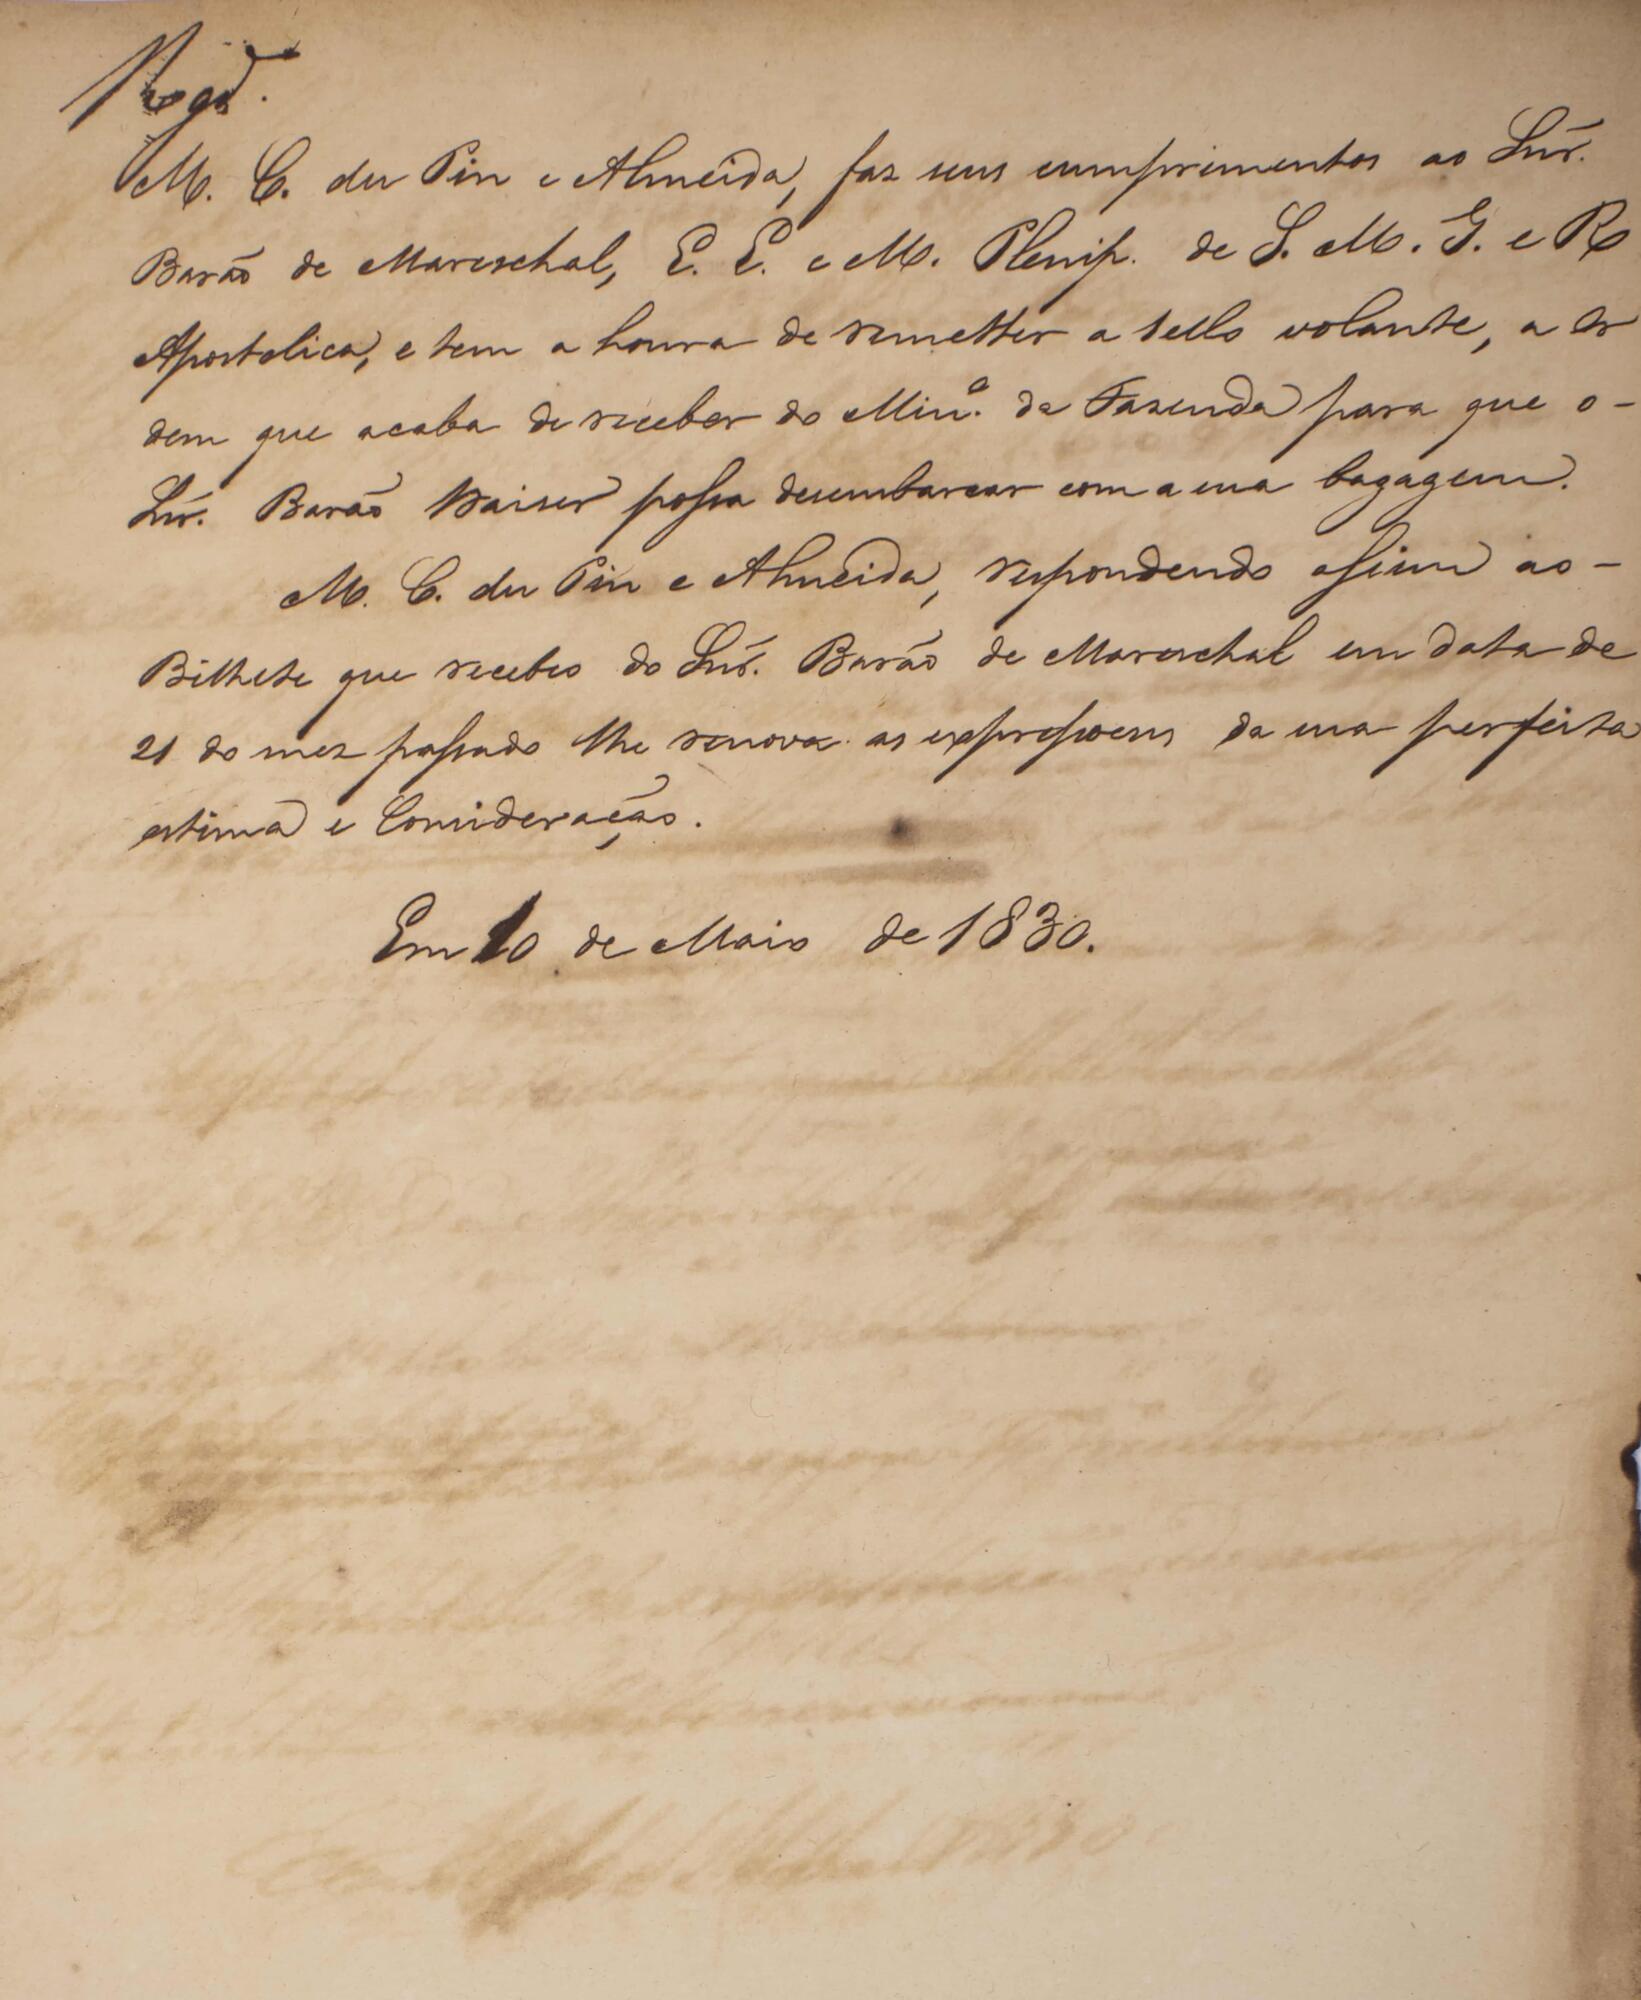 Regd.
M. C. du Pin e Almeida, faz seus cumprimentos ao Snr.
Barão de Mareschal, E. E. e M. Plenip. de S. M. I. e R
Apostolica, e tem a honra de remetter a sello volante, a or
dem que acaba de receber do Min.º da Fazenda para que o-
Snr. Barão Kaiser possa desembarcar com a sua bagagem.
M. C. du Pin e Almeida, respondendo assim ao-
Bilhete que recebeo do Snr. Barão de Mareschal em data de
21 do mez passado lhe renova as expressoens da sua perfeita
estima e Consideração.
Em 10 de Maio de 1830.